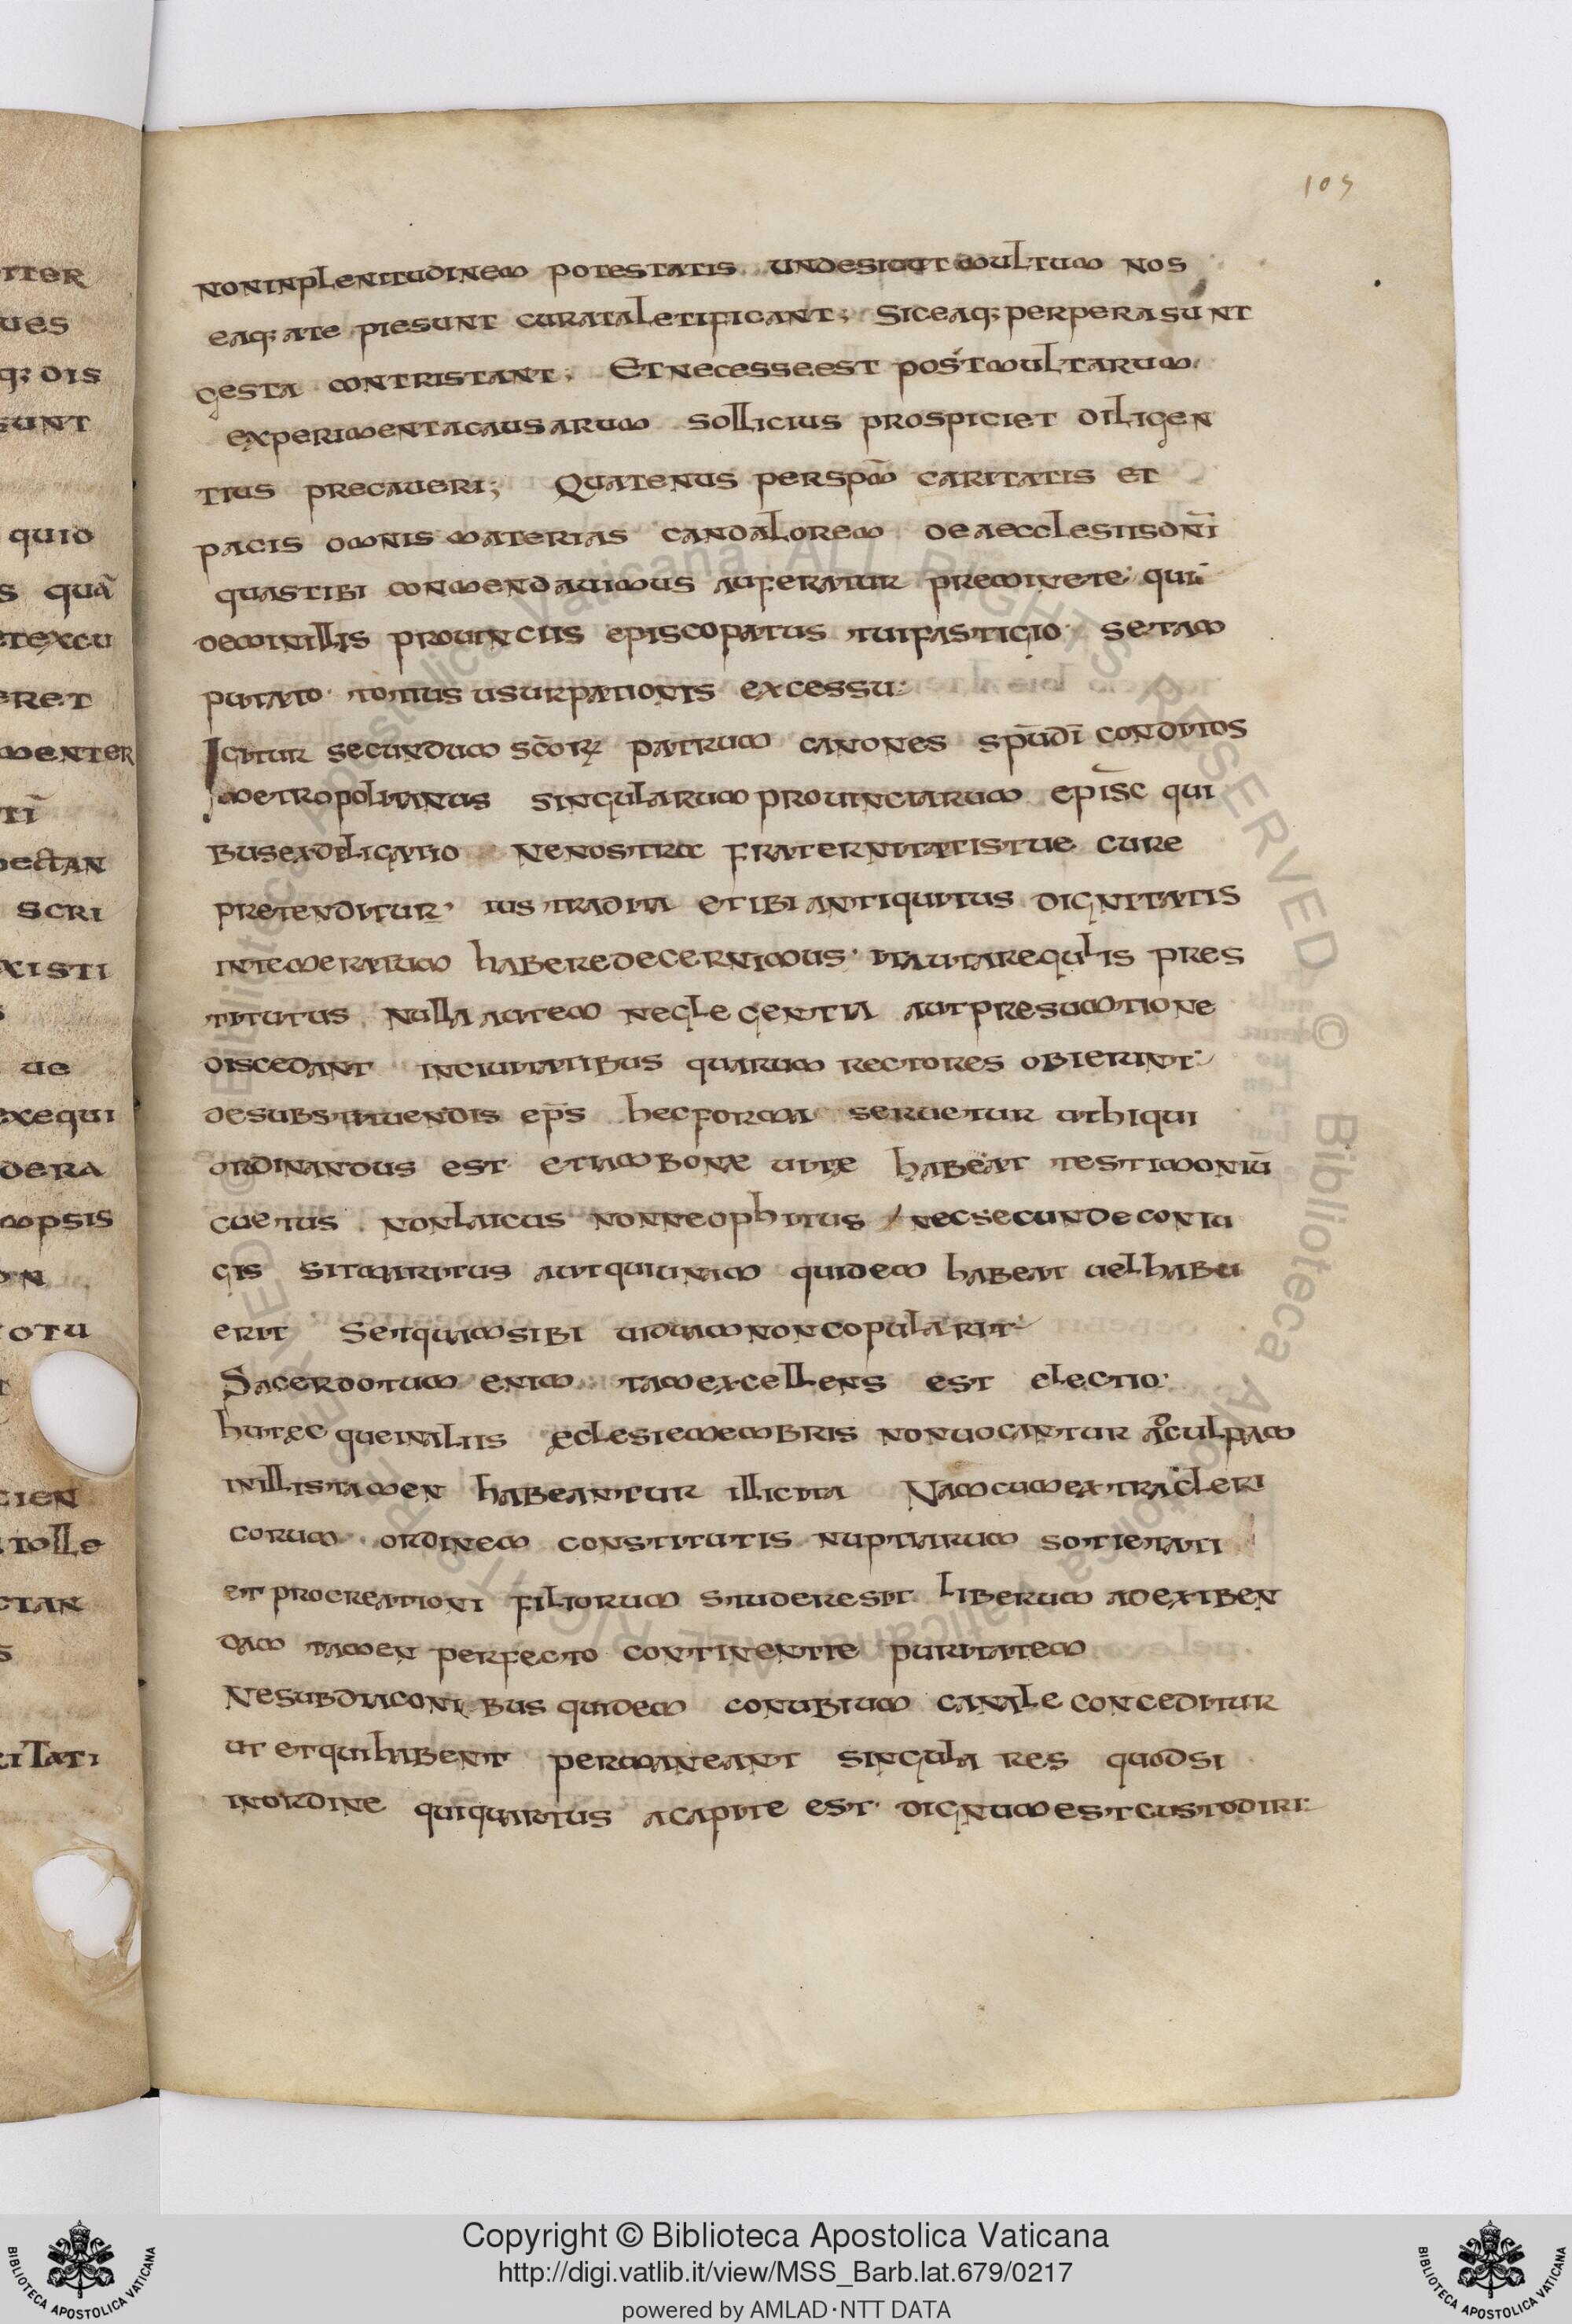 105
noninplenitudinem potestatis undesicut multum nos
eaq; ate piesunt curataletificant; Siceaq; perperasunt
gesta contristant; Etnecesseest postmultarum
experimentacausarum sollicius prospiciet diligen
tius precaueri; Quatenus perspm̄ caritatis et
pacis omnis materias candalorem deaecclesiisdn̄i
quastibi conmendauimus auferatur preminete quī
deminillis prouinciis episcopatus tuifastigio setam
putato totius usurpationis excessu:
Igitur secundum sc̄orꝝ patrum canones sp̄udī conditos
metropolitanus singularum prouinciarum epis̄c qui
busexdeligatio nenostra fraternitatistue cure
pretenditur ius tradita etibi antiquitus dignitatis
intemeratum haberedecernimus itautaregulis pres
titutus nulla autem neglegentia autpresumtione
discedant inciuitatibus quarum rectores obierint:
desubstituendis ep̄s hecforma seruetur uthiqui
ordinandus est etiambonæ uitæ habeat testimoniū
cuetus nonlaicus nonneophitus necsecundeconiu
gis sitmaritus autquiunam quidem habeat uelhabu
erit Setquamsibi uiduamnoncopularit
Sacerdotum enim tamexcellens est electio:
hutęc queinaliis ęclesiemembris nonuocantur aͦculpam
inillistamen habeantur illicita Namcumextracleri
corum ordinem constitutis nuptiarum sotietati
et procreationi filiorum studeresit liberum adexiben
dam tamen perfecto continentie puritatem
Nesubdiaconibus quidem conubium canale conceditur
ut etquihabent permaneant singula res quodsi
inordine quiquartus acapite est dignumestcustodiri:
Copyright © Biblioteca Apostolica Vaticana
http://digi.vatlib.it/view/MSS_Barb.lat.679/0217
powered by AMLAD·NTT DATA